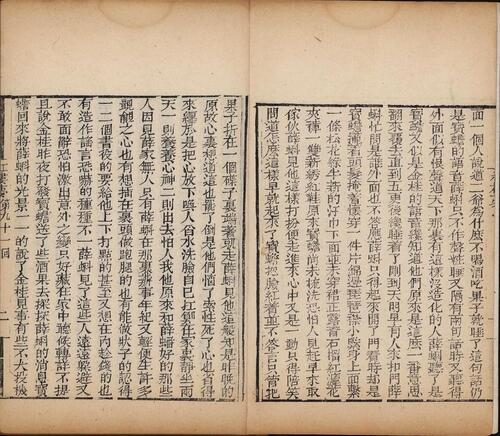 面一個人說道二爺為什麼不喝酒吃果子就睡了這句話仍
是寶蟾的語音薛蝌只不作聲裝睡又隔有兩句話時又聽得
外面似有恨聲道天下那裏有這樣沒造化的人薛蝌聽了是
寶蟾又似是金桂的語音纔知道他們原來是這一番意思
翻來覆去直到五更後纔睡着了剛到天明早有人來扣門薛
蝌忙問是誰外面也不答應薛蝌只得起來開了門看時却是
寶蟾攏着頭髮掩着懷穿一件片錦邊琵琶襟小緊身上面繫
一條松花綠半新的汗巾下面並未穿裙正露着石榴紅灑花
夾褲一雙新繡紅鞋原來寶蟾尚未梳洗恐怕人見赶早來取
傢伙薛蝌見他這樣打扮便走進來心中又是一動只得陪笑
問道怎麼這樣早就起來了寶蟾把臉紅着並不答言只管把
果子折在一個碟子裏端着就走薛蝌見他這般知是昨晚的
原故心裏想道這也罷了倒是他們惱了索性死了心也省得
來纏於是把心放下喚人舀水洗臉自己打算在家裏靜坐兩
天一則養養心神二則出去怕人找他原來和薛蟠好的那些
人因見薛家無人只有薛蝌在那裏辦事年紀又輕便生許多
覬覦之心也有想插在裏頭做跑腿的也有能做狀子的認得
一二個書役的要給他上下打點的甚至又有想在內趁錢的也
有造作謠言恐嚇的種種不一薛蝌見了這些人遠遠躲避又
不敢面辭恐怕激出意外之變只好藏在家中聽候轉詳不提
且說金桂昨夜打發寶蟾送了些酒果去探探薛蝌的消息寶
蟾回來將薛蝌的光景一一的說了金桂見事有些不大投機
第九十一回
二